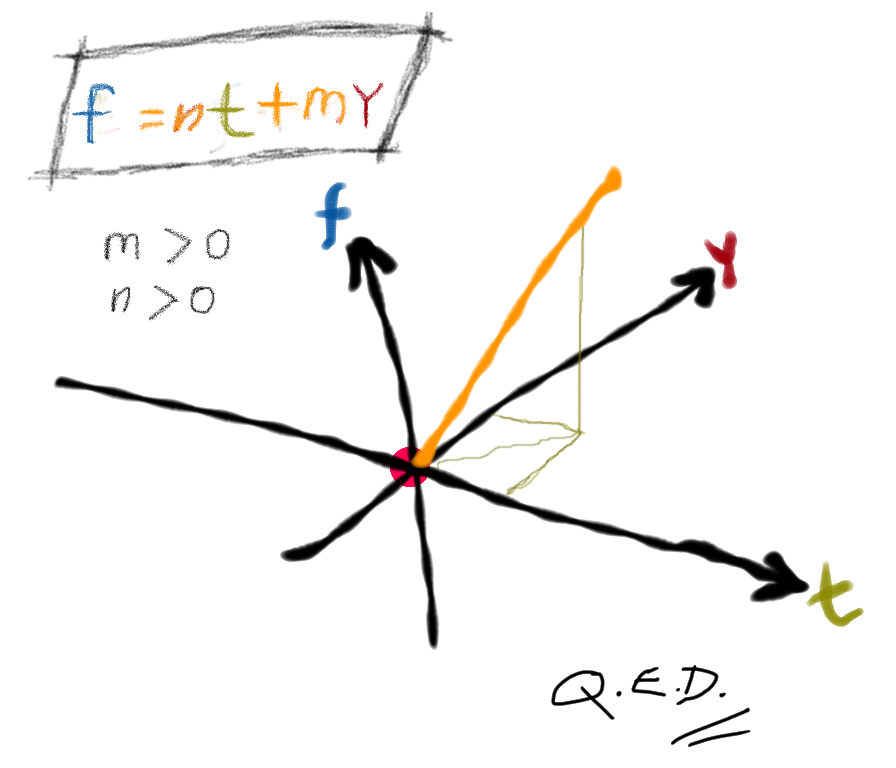 f = nt + mY
m > 0
n > 0
f
Y
t
Q.E.D.